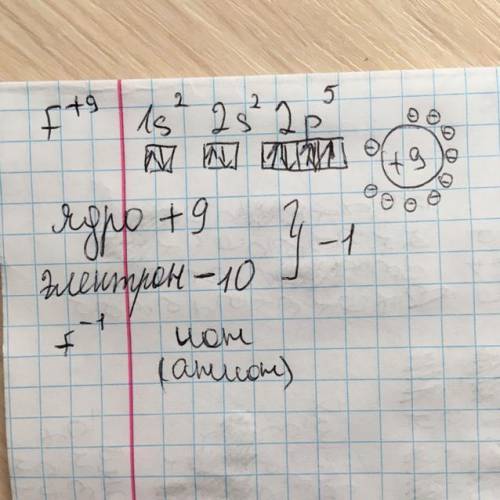 F⁺⁹ 1s² 2s² 2p⁵
+9
ядро +9
электрон -10 } -1
F⁻¹ ион
(анион)